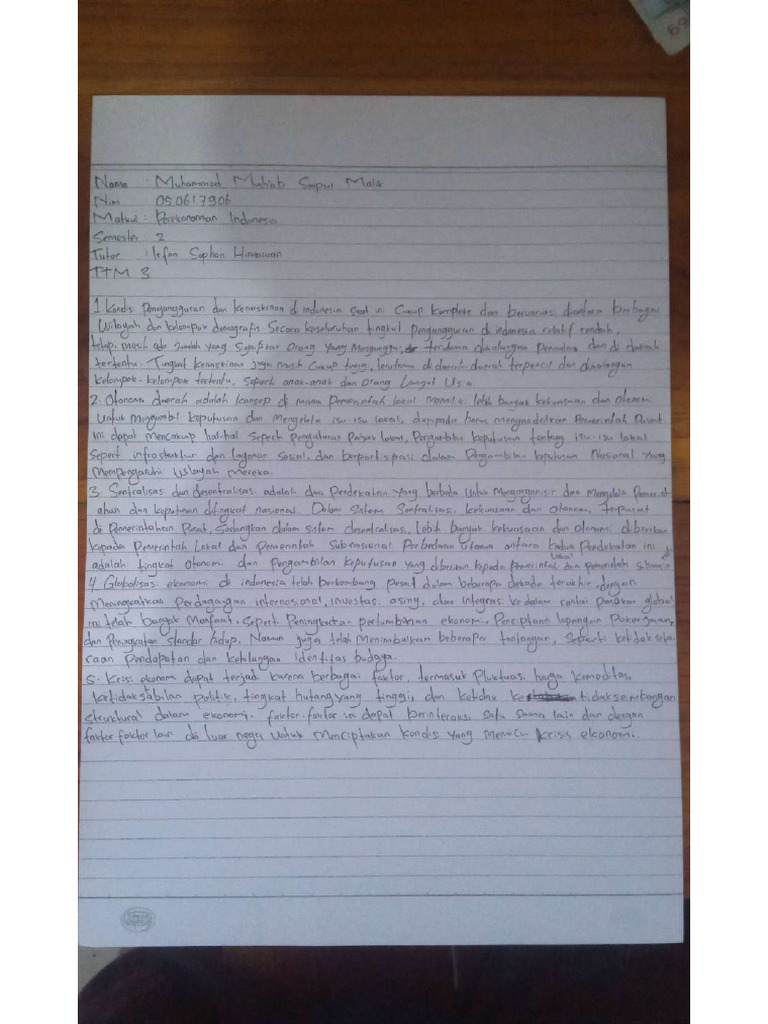 Nama : Muhammad Muhiab Saipul Malik
Nim : 050617906
Matkul : Perekonoman Indonesia
Semester 2
Tutor : Iefan Sophan Himawan
TTM 3
1 Kondisi Pengangguran dan kemiskinan di indonesia saat ini Cukup kompleks dan bervariasi diantara berbagai
Wilayah dan kelompok demografis Secara keseluruhan tingkat pengangguran di indonesia relatif rendah,
tetapi masih ada Jumlah yang Signifikan Orang yang Menganggur, terutama dikalangan Pemuda dan di daerah
tertentu. Tingkat kemiskinan juga masih Cukup tinggi, terutama di daerah-daerah terpencil dan dikalangan
kelompok-kelompok tertentu, seperti anak-anak dan Orang Lanjut Usia.
2. Otonomi daerah adalah konsep di mana Pemerintah lokal memiliki lebih banyak kekuasaan dan otonomi
Untuk Mengambil keputusan dan Mengelola isu-isu lokal, daripada harus mengandalkan Pemerintah Pusat
Ini dapat mencakup hal-hal Seperti Pengaturan Pajak Lokal, Pengambilan keputusan tentang isu-isu lokal
Seperti infrastruktur dan layanan sosial, dan berpartisipasi dalam Pengambilan keputusan Nasional yang
Mempengaruhi Wilayah mereka.
3. Sentralisasi dan desentralisasi adalah dua Pendekatan yang berbeda Untuk Mengorganisir dan Mengelola Pemerint
ahan dan keputusan ditingkat nasional. Dalam Sistem Sentralisasi, kekuasaan dan otonomi, terpusat
di Pemerintahan Pusat, Sedangkan dalam sistem desentralisasi, Lebih banyak kekuasaan dan otonomi diberikan
kepada Pemerintah Lokal dan Pemerintah Sub-nasional Perbedaan Utama antara kedua Pendekatan ini
adalah tingkat otonomi dan Pengambilan keputusan yang diberikan kepada pemerintah Lokal dan pemerintah
4 Globalisasi ekonomi di indonesia telah berkembang pesat dalam beberapa dekade terakhir, dengan
Meningkatkan Perdagangan internasional, investasi asing, dan integrasi kedalam rantai pasokan global
ini telah banyak Manfaat, Seperti Peningkatan pertumbuhan ekonomi, Penciptaan lapangan Pekerjaan,
dan Peningkatan standar hidup. Namun juga telah Menimbulkan beberapa tantangan, Seperti ketidakseta
raan Pendapatan dan kehilangan identitas budaya.
5. Krisi ekonomi dapat terjadi karena berbagai faktor, termasuk Fluktuasi harga komoditas,
ketidakstabilan politik, tingkat hutang yang tinggi, dan ketidaksembangan
struktural dalam ekonomi. faktor-faktor ini dapat berinteraksi satu sama lain dan dengan
faktor faktor lain di luar negri untuk menciptakan kondisi yang memicu krisis ekonomi.